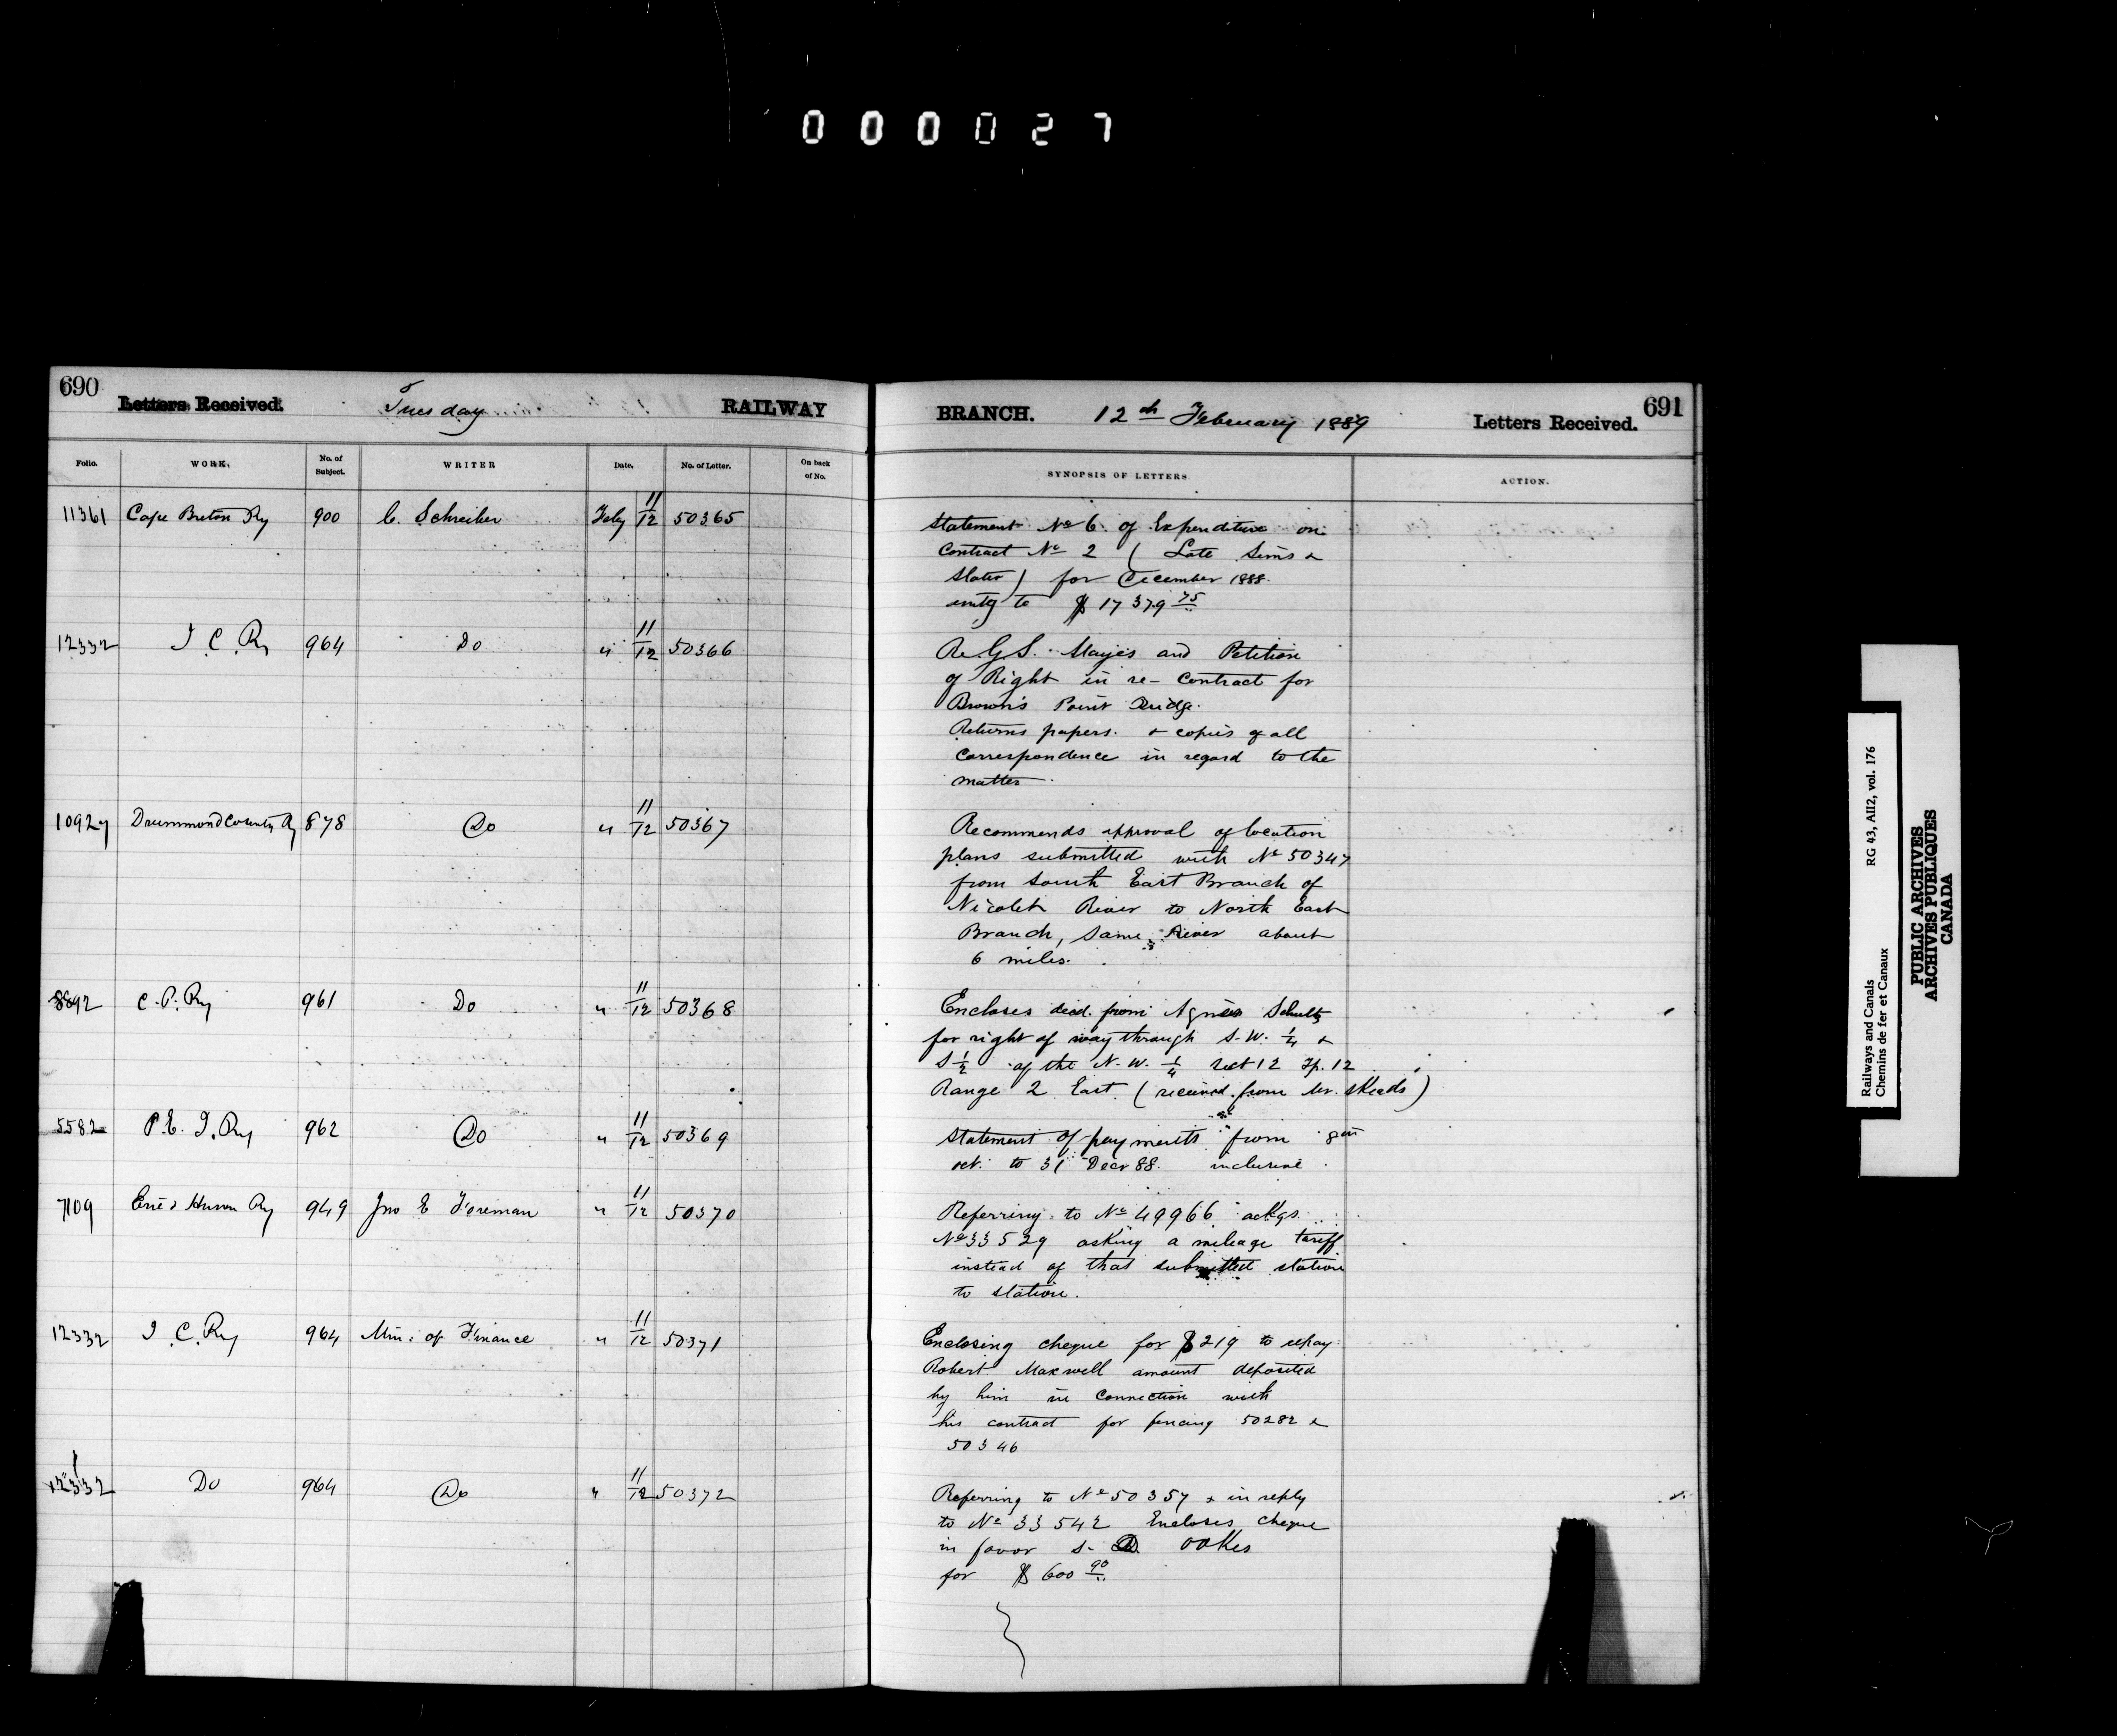 000027
690
Letters Received. Tuesday RAILWAY
Folio. WORK. No. of Subject. WRITER Date. No. of Letter. On back of No.
11361 Cape Breton Ry 900 C. Schreiber Feby 11/12 50365
12332 I. C. Ry 964 Do " 11/12 50366
10927 Drummond County Ry 878 Do " 11/12 50367
8892 C. P. Ry 961 Do " 11/12 50368
5582 P. E. I. Ry 962 Do " 11/12 50369
7109 Erie & Huron Ry 949 Jno E Foreman " 11/12 50370
12332 I C. Ry 964 Min: of Finance " 11/12 50371
12332 Do 964 Do " 11/12 50372
691
BRANCH. 12th February 1889 Letters Received.
SYNOPSIS OF LETTERS ACTION.
Statement No 6 of Expenditure on
Contract No 2 (Late Sims &
Slater) for December 1888.
amtg to $17379 75
Re G. S. Mayes and Petition
of Right in re- Contract for
Brown's Point Bridge.
Returns papers & copies of all
correspondence in regard to the
matter
Recommends approval of location
plans submitted with No 50347
from South East Branch of
Nicolet River to North East
Branch, same River about
6 miles.
Encloses deed from Agnes Schultz
for right of way through S.W. 1/4 &
S 1/2 of the N.W. 1/4 Sect 12 Tp. 12
Range 2 East (received from Mr. Skeads)
Statement of payments from 8th
Oct. to 31 Decr 88. inclusive
Referring to No 49966 ackgs.
No 33529 asking a mileage tariff
instead of that submitted station
to station.
Enclosing cheque for $219 to repay
Robert Maxwell amount deposited
by him in connection with
his contract for fencing 50282 &
50346
Referring to No 50357 & in reply
to No 33542 Encloses cheque
in favor S. D. Oakes
for $600 90
Railways and Canals RG 43, AII2, vol. 176
Chemins de fer et Canaux
PUBLIC ARCHIVES
ARCHIVES PUBLIQUES
CANADA